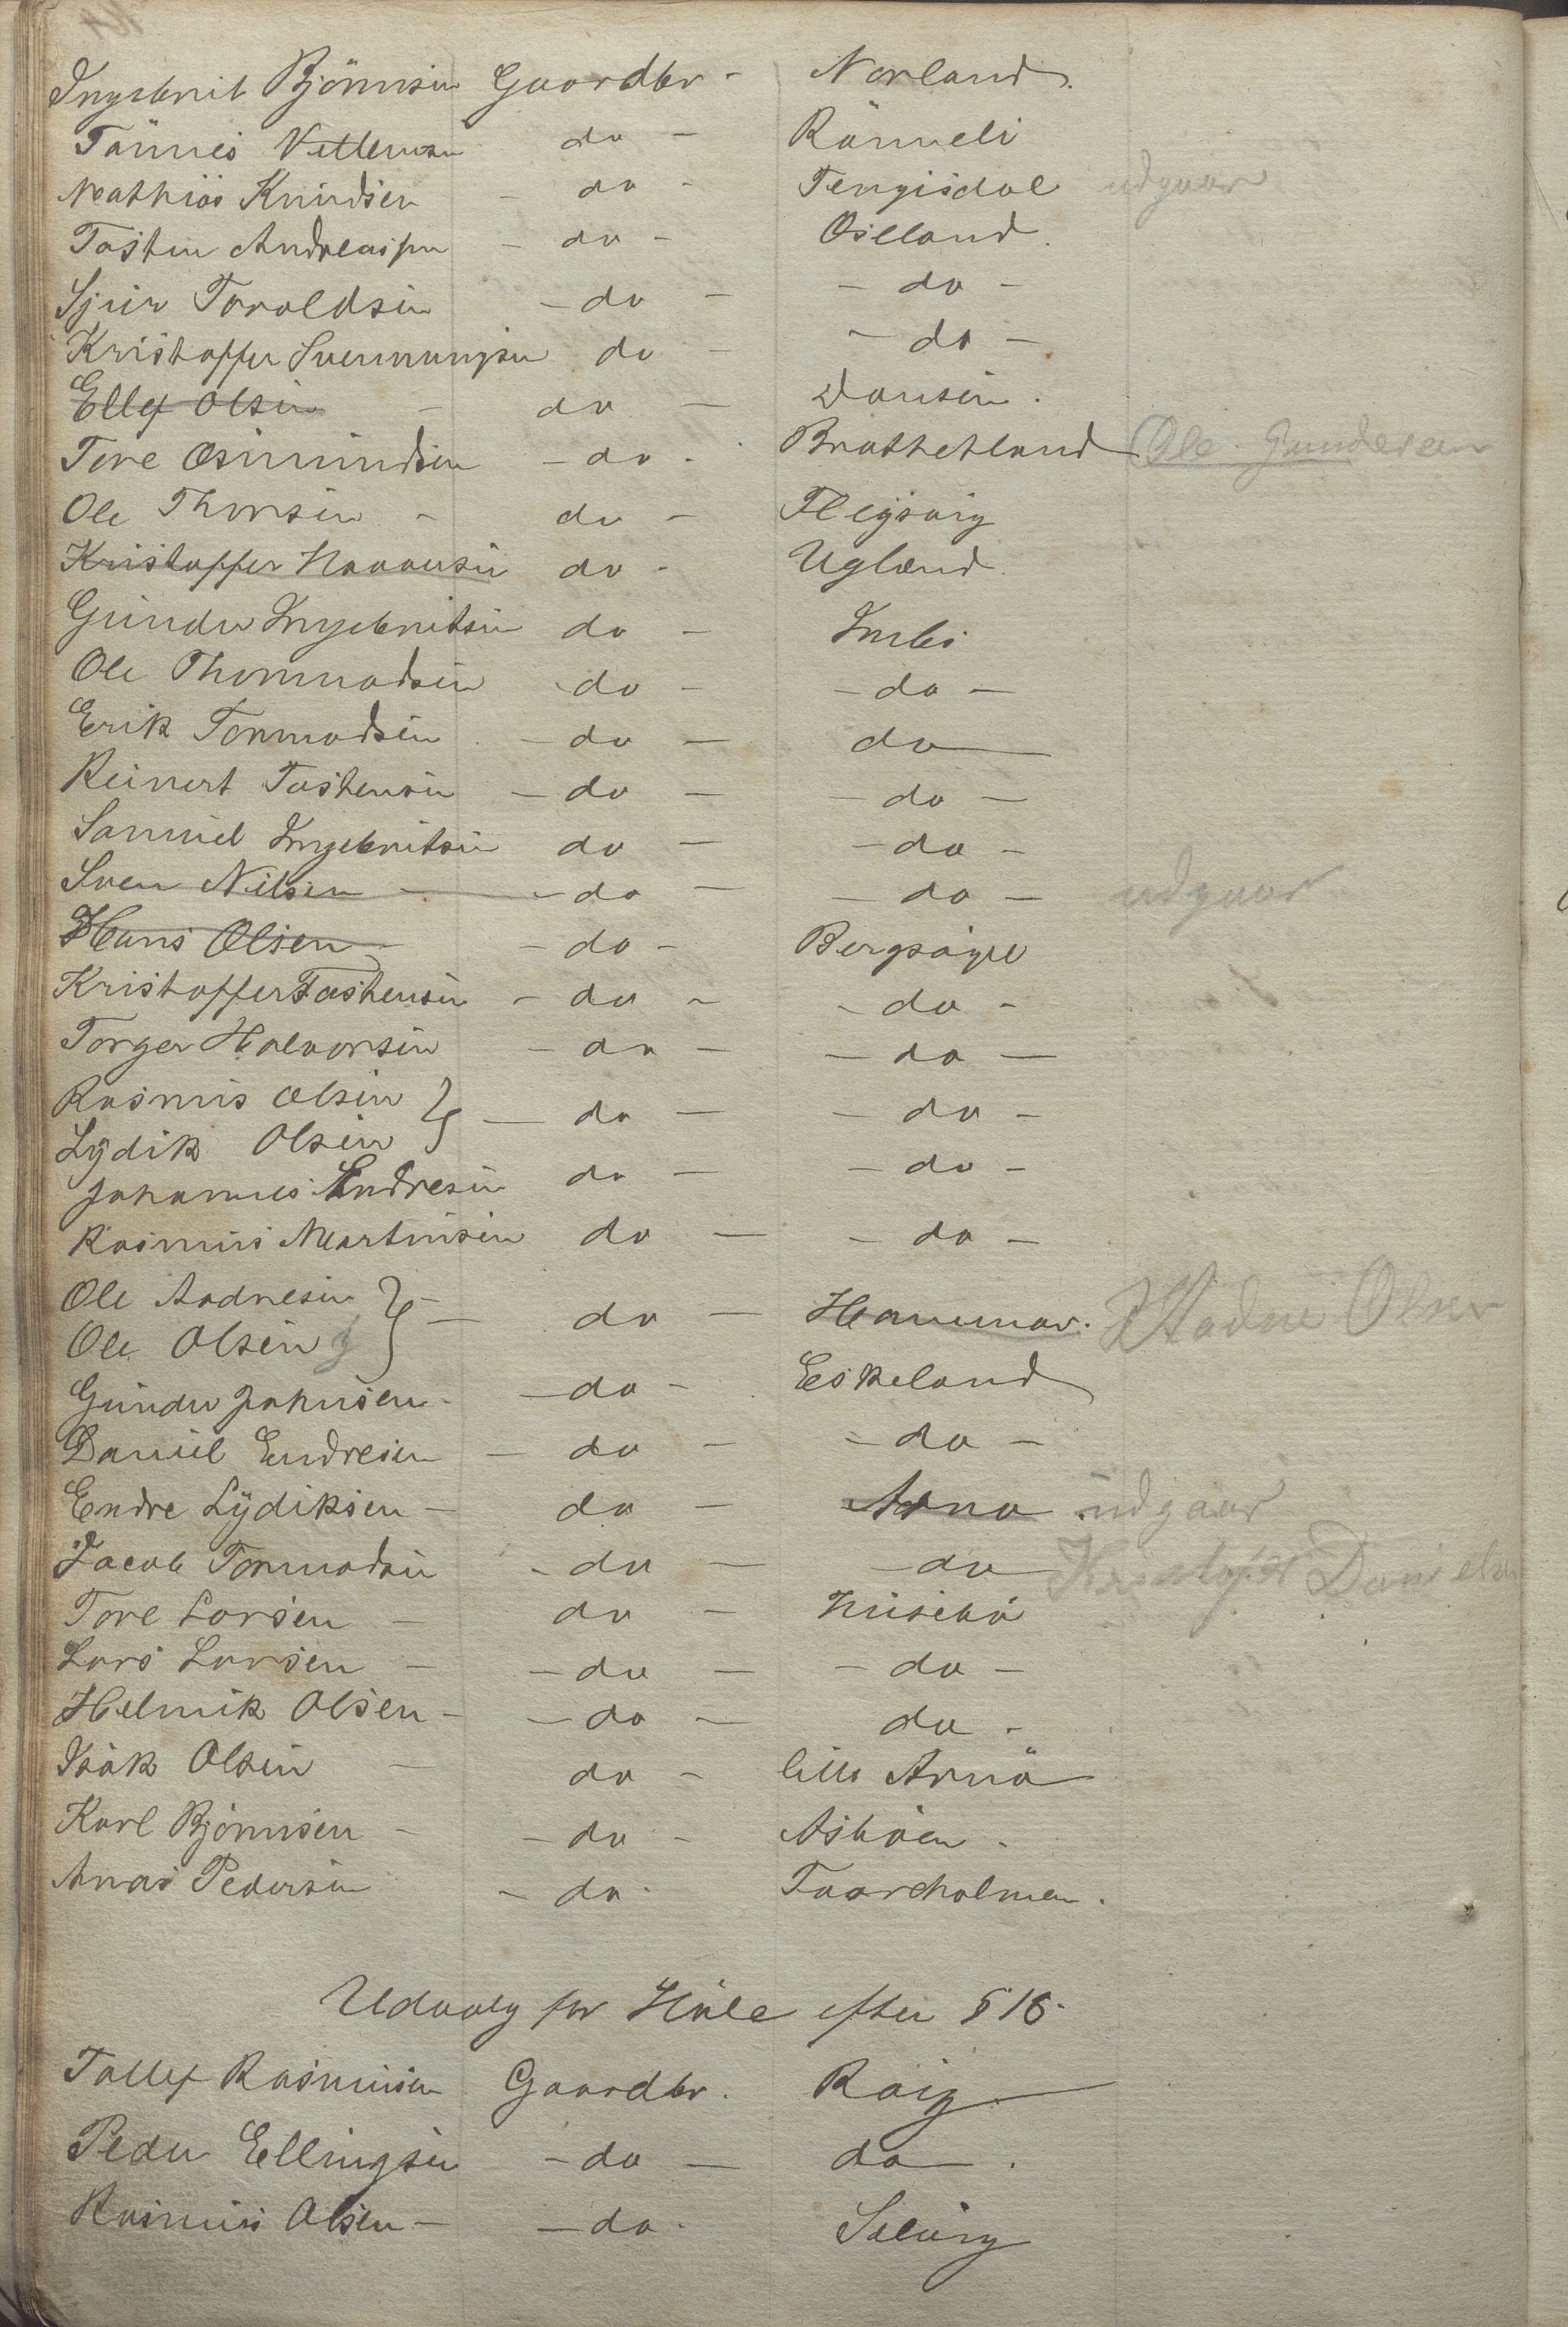 Ingebrit Bjørnsen Gaardbr - Norland.
Tønnes Vetlemsen do - Rønneli
Mathias Knudsen - do - Tengisdal udgaar
Tosten Andreassen - do - Osland.
Sjur Toroldsen - do - - do -
Kristoffer Svennungsen do - - do -
Ellef Olsen - do - Dansen.
Tore Osmundsen - do - Brathetland Ole Gundersen
Ole Thorsen - do - Fløgsvig
Kristoffer Haavorsen do - Ugland.
Gunder Ingebritsen do - Imbs
Ole Thormodsen do - - do -
Erik Tormodsen - do - do
Reinert Tostensen - do - - do -
Samuel Ingebritsen do - - do -
Sven Nilsen - - do - - do - udgaar
Hans Olsen - - do - Bergsagel
Kristoffer Tostensen - do - - do -
Torger Halvorsen - do - - do -
Rasmus Olsen } - do - - do -
Lydik Olsen
Johannes Endresen do - - do -
Rasmus Martinsen do - - do -
Ole Aadnesen } - do - Hammar. Aadne Olsen
Ole Olsen
Gunder Johnsen. - do - Eskeland
Daniel Endresen - do - - do -
Endre Lydiksen - do - Arna udgaar
Jacob Tormodsen - do - - do Kristofer Danielsen
Tore Larsen - do - Husebø
Lars Larsen - - do - - do -
Helmik Olsen - - do - do -
Isak Olsen - do - lille Arnø
Karl Bjørnsen - - do - Asbøen -
Anas Pedersen - do. Faareholmen.
Udvalg for Hæle efter § 16.
Tollef Rasmusen Gaardbr. Røig
Peder Ellingsen - do - do .
Rasmus Olsen - - do. Selvig